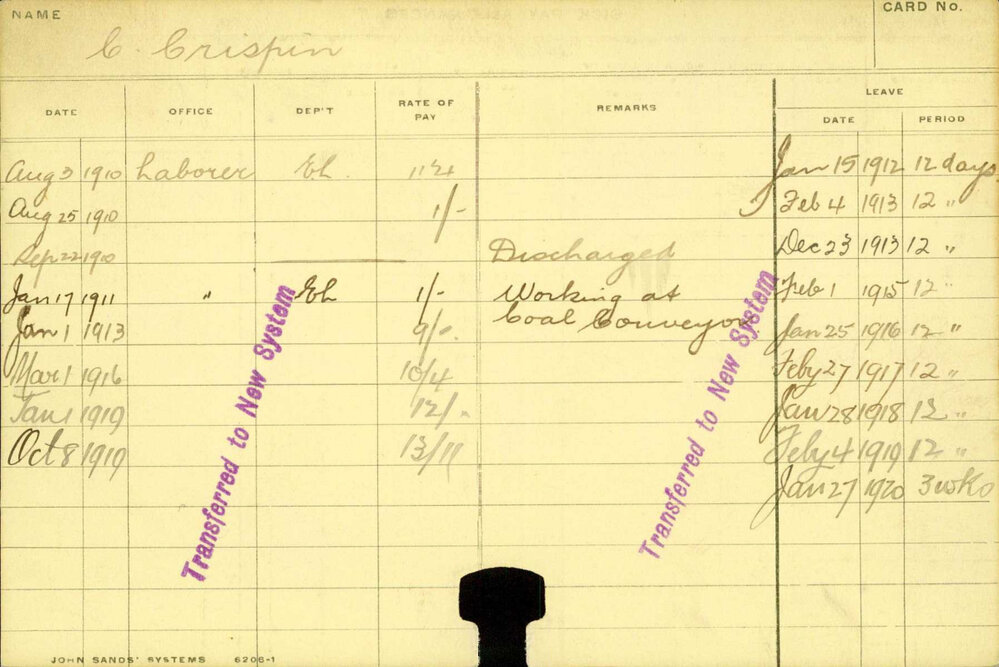 NAME
C. Crispin
CARD No.
DATE OFFICE DEP'T RATE OF PAY REMARKS LEAVE
DATE PERIOD
Aug 3 1910 Laborer Eh. Jan 15 1912 12 days
Aug 25 1910 1/- Feb 4 1913 12 "
Sep 22 1910 Discharged Dec 23 1913 12 "
Jan 17 1911 " Eh 1/- Working at Feb 1 1915 12 "
Jan 1 1913 9/- Coal Conveyor Jan 25 1916 12 "
Mar 1 1916 10/4 Feby 27 1917 12 "
Jan 1 1919 12/- Jan 28 1918 12 "
Oct 8 1919 13/11 Feby 4 1919 12 "
Jan 27 1920 3 wks
Transferred to New System
Transferred to New System
JOHN SANDS' SYSTEMS 6206-1